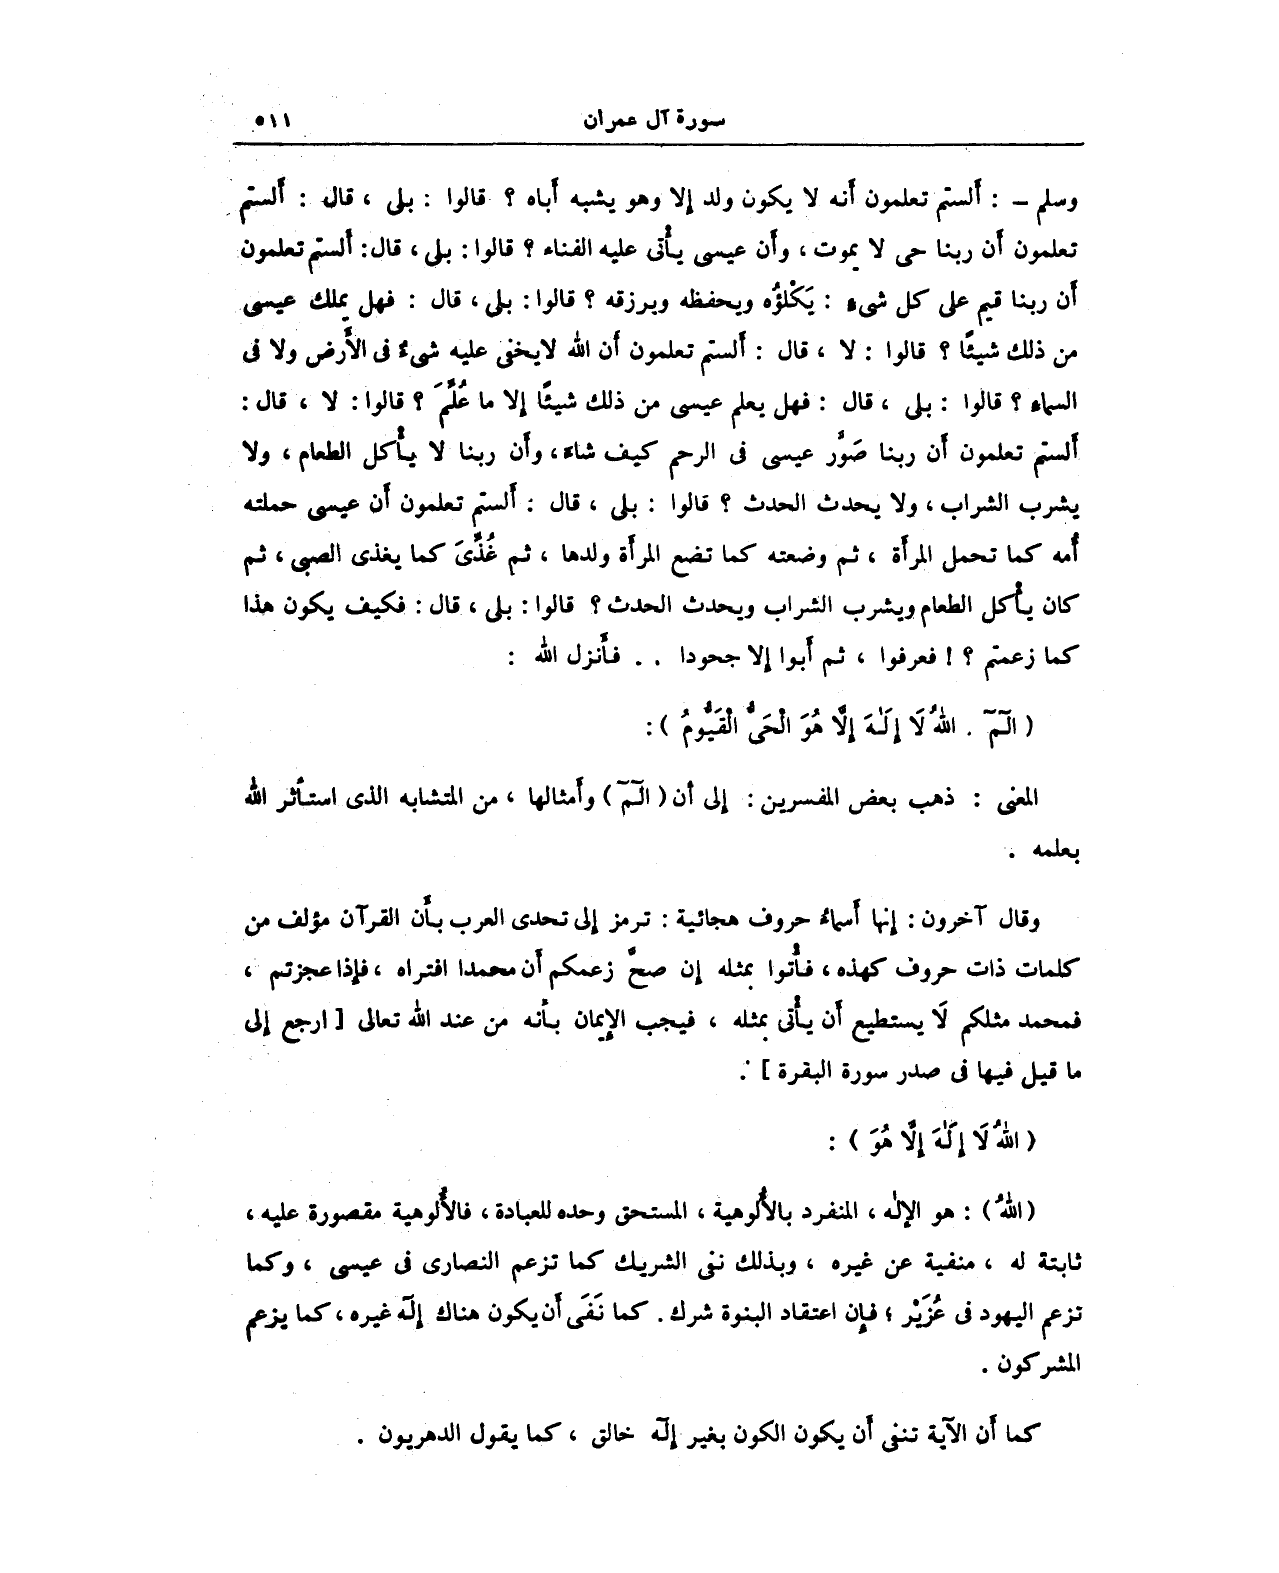 سورة آل عمران ٥١١
وسلم – : ألستم تعلمون أنه لا يكون ولد إلا وهو يشبه أباه ؟ قالوا : بلى ، قال : ألستم
تعلمون أن ربنا حى لا يموت ، وأن عيسى يأتى عليه الفناء ؟ قالوا : بلى ، قال : ألستم تعلمون
أن ربنا قيم على كل شىء : يَكْلؤُه ويحفظه ويرزقه ؟ قالوا : بلى ، قال : فهل يملك عيسى
من ذلك شيئًا ؟ قالوا : لا ، قال : ألستم تعلمون أن الله لايخفى عليه شىءٌ فى الأَرض ولا فى
السماء ؟ قالوا : بلى ، قال : فهل يعلم عيسى من ذلك شيئًا إلا ما عُلِّمَ ؟ قالوا : لا ، قال :
ألستم تعلمون أن ربنا صَوَّر عيسى فى الرحم كيف شاءَ ، وأن ربنا لا يأْكل الطعام ، ولا
يشرب الشراب ، ولا يحدث الحدث ؟ قالوا : بلى ، قال : ألستم تعلمون أن عيسى حملته
أمه كما تحمل المرأة ، ثم وضعته كما تضع المرأة ولدها ، ثم غُذِّىَ كما يغذى الصبى ، ثم
كان يأْكل الطعام ويشرب الشراب ويحدث الحدث ؟ قالوا : بلى ، قال : فكيف يكون هذا
كما زعمتم ؟ ! فعرفوا ، ثم أبوا إلا جحودا . . فأنزل الله :
( الٓمٓ . اللهُ لَا إِلَٰهَ إِلَّا هُوَ الْحَىُّ الْقَيُّومُ ) :
المعنى : ذهب بعض المفسرين : إلى أن ( الٓمٓ ) وأمثالها ، من المتشابه الذى استأثر الله
بعلمه .
وقال آخرون : إنها أسماءُ حروف هجائية : ترمز إلى تحدى العرب بأن القرآن مؤلف من
كلمات ذات حروف كهذه ، فأْتوا بمثله إن صحَّ زعمكم أن محمدا افتراه ، فإذا عجزتم ،
فمحمد مثلكم لَا يستطيع أن يأْتى بمثله ، فيجب الإيمان بأنه من عند الله تعالى [ ارجع إلى
ما قيل فيها فى صدر سورة البقرة ] .
( اللهُ لَا إِلَٰهَ إِلَّا هُوَ ) :
( اللهُ ) : هو الإله ، المنفرد بالأُلوهية ، المستحق وحده للعبادة ، فالأُلوهية مقصورة عليه ،
ثابتة له ، منفية عن غيره ، وبذلك نفى الشريك كما تزعم النصارى فى عيسى ، وكما
تزعم اليهود فى عُزَيْر ؛ فإن اعتقاد البنوة شرك . كما نَفَى أن يكون هناك إلٰه غيره ، كما يزعم
المشركون .
كما أن الآية تنفى أن يكون الكون بغير إلٰه خالق ، كما يقول الدهريون .